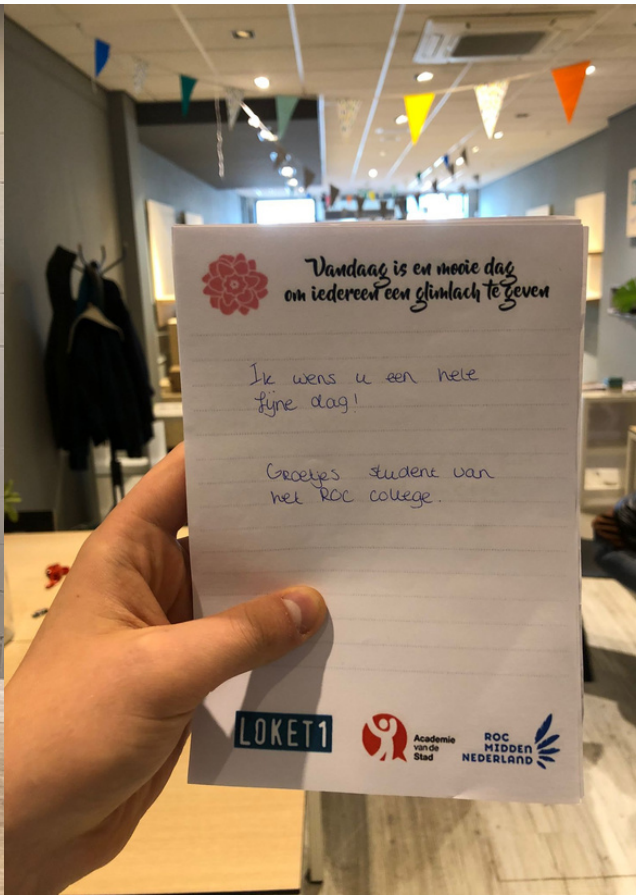 Vandaag is en mooie dag
om iedereen een glimlach te geven
Ik wens u een hele
fijne dag!
Groetjes student van
het ROC college.
LOKET1
Academie
van de
Stad
ROC
MIDDEN
NEDERLAND